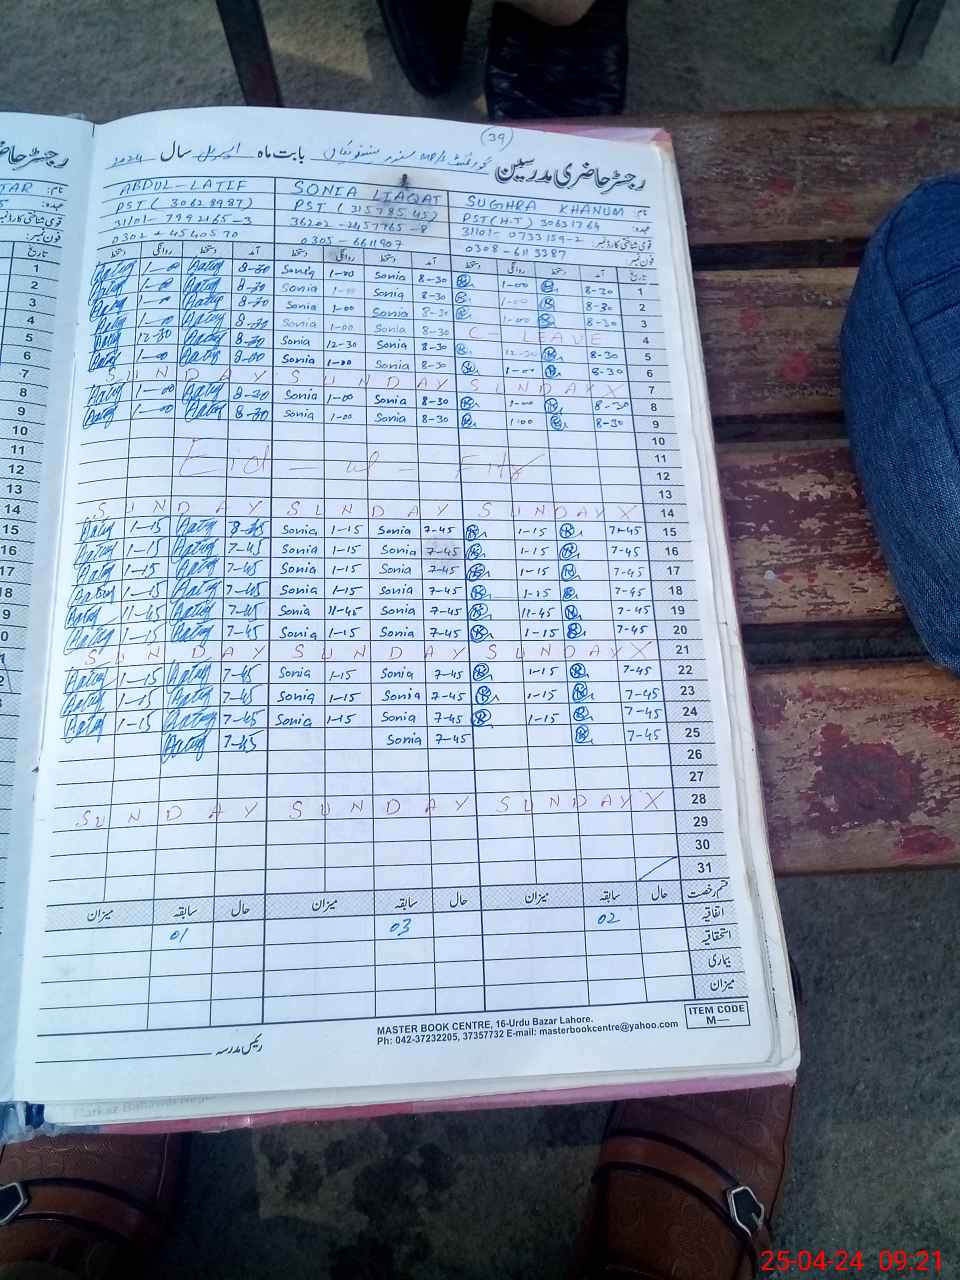 (39)
رجسٹر حاضری مدرسین
بابت ماہ اپریل سال 2024
ABDUL-LATIF SONIA LIAQAT SUGHRA KHANUM نام:
PST (30628987) PST (31578545) PST(H.T) 30631764 عہدہ:
31101-7992165-3 36202-2457765-8 31101-0733159-2 قومی شناختی کارڈ نمبر:
0302-4540570 0305-6611907 0308-6113387 فون نمبر:
دستخط روانگی دستخط آمد دستخط روانگی دستخط آمد دستخط روانگی دستخط آمد تاریخ
1-00 8-30 Sonia 1-00 Sonia 8-30 1-00 8-30 1
1-00 8-30 Sonia 1-00 Sonia 8-30 1-00 8-30 2
1-00 8-30 Sonia 1-00 Sonia 8-30 1-00 8-30 3
1-00 8-30 Sonia 1-00 Sonia 8-30 C- LEAVE 4
12-30 8-30 Sonia 12-30 Sonia 8-30 12-30 8-30 5
1-00 8-00 Sonia 1-00 Sonia 8-30 1-00 8-30 6
SUNDAY SUNDAY SUNDAY X 7
1-00 8-30 Sonia 1-00 Sonia 8-30 1-00 8-30 8
1-00 8-30 Sonia 1-00 Sonia 8-30 1-00 8-30 9
10
Eid-ul-Fitr 11
12
13
SUNDAY SUNDAY SUNDAY X 14
1-15 Sonia 1-15 Sonia 7-45 1-15 7-45 15
1-15 7-45 Sonia 1-15 Sonia 7-45 1-15 7-45 16
1-15 7-45 Sonia 1-15 Sonia 7-45 1-15 7-45 17
1-15 7-45 Sonia 1-15 Sonia 7-45 1-15 7-45 18
11-45 7-45 Sonia 11-45 Sonia 7-45 11-45 7-45 19
1-15 7-45 Sonia 1-15 Sonia 7-45 1-15 7-45 20
SUNDAY SUNDAY SUNDAY X 21
1-15 7-45 Sonia 1-15 Sonia 7-45 1-15 7-45 22
1-15 7-45 Sonia 1-15 Sonia 7-45 1-15 7-45 23
1-15 7-45 Sonia 1-15 Sonia 7-45 1-15 7-45 24
7-45 Sonia 7-45 7-45 25
26
27
SUNDAY SUNDAY SUNDAY X 28
29
30
31
میزان سابقہ حال میزان سابقہ حال میزان سابقہ حال قسم رخصت
01 03 02 اتفاقیہ
استحقاقیہ
بیماری
میزان
رئیس مدرسہ
MASTER BOOK CENTRE, 16-Urdu Bazar Lahore.
Ph: 042-37232205, 37357732 E-mail: masterbookcentre@yahoo.com
ITEM CODE
M—
25-04-24 09:21